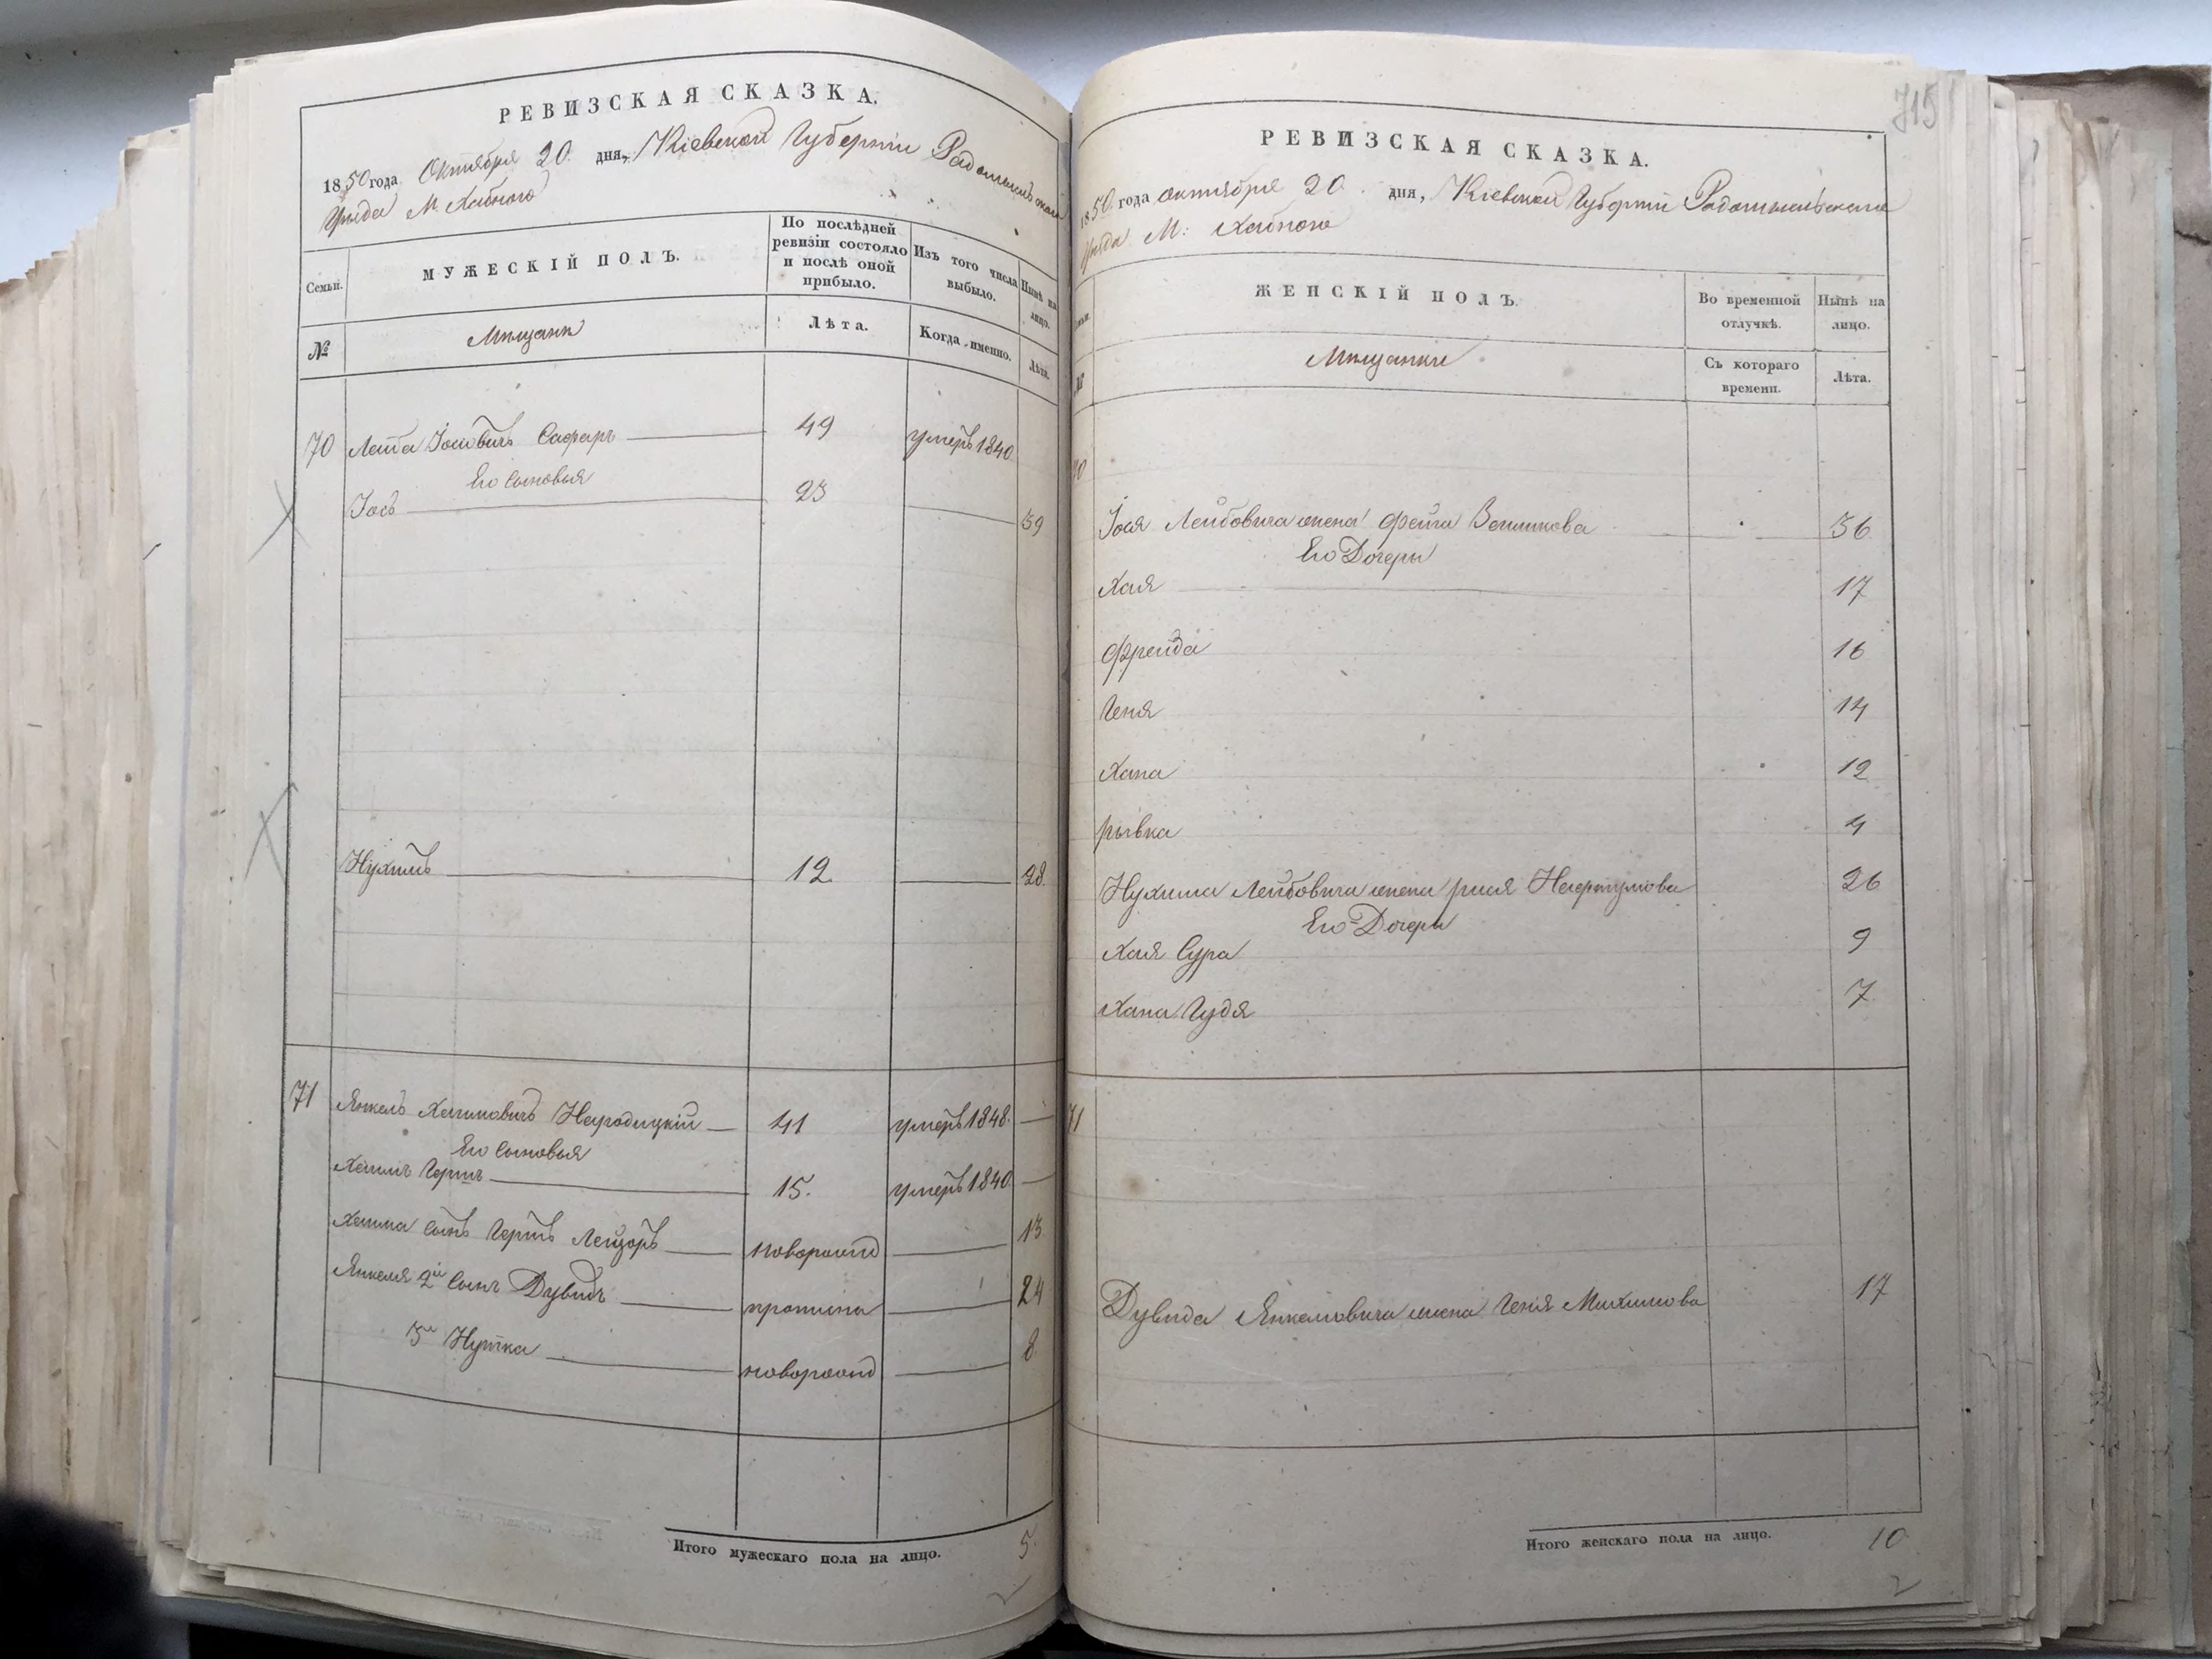 РЕВИЗСКАЯ СКАЗКА.
1850 года Октября 20 дня, Кіевской Губерніи Радомысльскаго
Уѣзда М. Хабного
Семьи.
МУЖЕСКІЙ ПОЛЪ.
По послѣдней ревизіи состояло и послѣ оной прибыло.
Изъ того числа выбыло.
Нынѣ на лицо.
№
Мѣщани
Лѣта.
Когда именно.
Лѣта.
70 Лейба Іосіовичъ Сафаръ 49 умеръ 1840
Его сыновья
Іось 23 39
Нухимъ 12 28
71 Янкель Хаимовичъ Народицкій 41 умеръ 1848
Его сыновья
Хаимъ Гершъ 15. умеръ 1840
Хаима сынъ Гершъ Лейзоръ новорожд 13
Янкеля 2й сынъ Дувидъ пропина 24
3й Нутка новорожд 8
Итого мужескаго пола на лицо. 5
715
РЕВИЗСКАЯ СКАЗКА.
1850 года октября 20 дня, Кіевской Губерніи Радомысльскаго
Уѣзда М: Хабного
ЖЕНСКІЙ ПОЛЪ.
Во временной отлучкѣ.
Нынѣ на лицо.
Мѣщанки
Съ котораго времени.
Лѣта.
70
Іося Лейбовича жена Фейга 36
Его Дочери
Хая 17
Фрейда 16
Геня 14
Хана 12
Рывка 4
Нухима Лейбовича жена Рися Нафтулова 26
Его Дочери
Хая Сура 9
Хана Гудя 7
71
Дувида Янкеловича жена Геня Михилова 17
Итого женскаго пола на лицо. 10